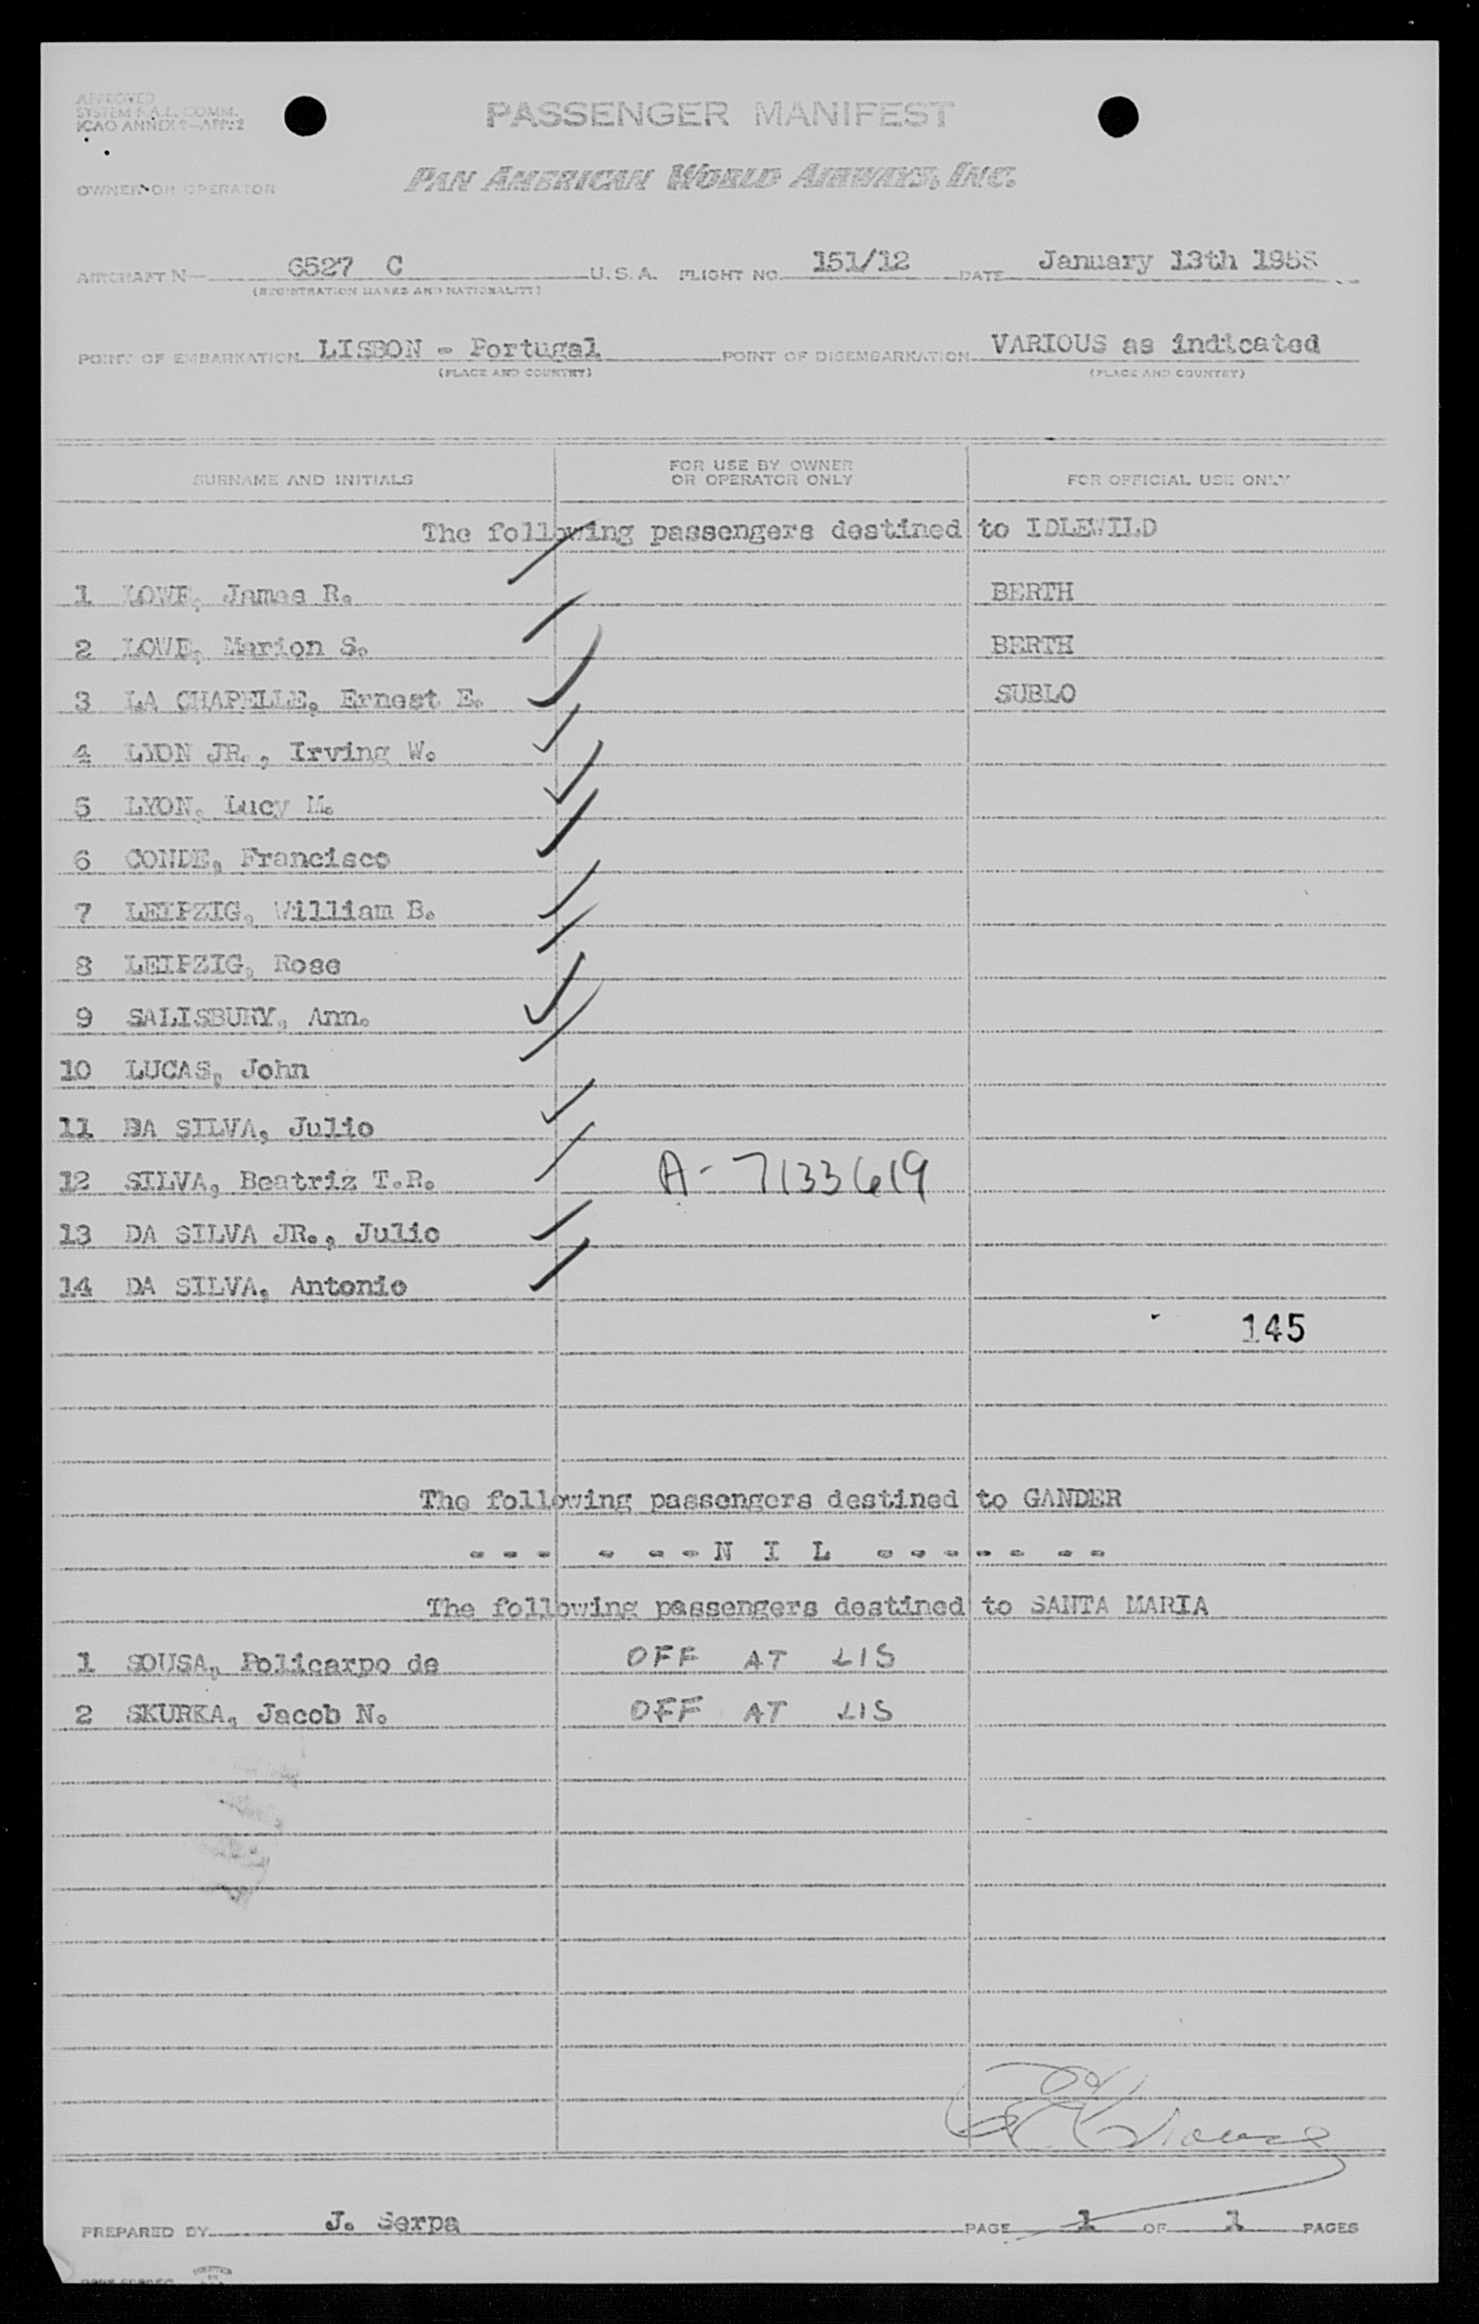 APPROVED
SYSTEM F.A.L. COMM.
ICAO ANNEX 9-APP:2
PASSENGER MANIFEST
OWNER OR OPERATOR PAN AMERICAN WORLD AIRWAYS, INC.
AIRCRAFT N— 6527 C U.S.A. FLIGHT NO. 151/12 DATE January 13th
(REGISTRATION MARKS AND NATIONALITY)
POINT OF EMBARKATION LISBON - Portugal POINT OF DISEMBARKATION VARIOUS as indicated
(PLACE AND COUNTRY) (PLACE AND COUNTRY)
SURNAME AND INITIALS FOR USE BY OWNER OR OPERATOR ONLY FOR OFFICIAL USE ONLY
The following passengers destined to IDLEWILD
1 LOWE, James R. BERTH
2 LOWE, Marion S. BERTH
3 LA CHAPELLE, Ernest E. SUBLO
4 LYON JR., Irving W.
5 LYON, Lucy M.
6 CONDE, Francisco
7 LEIPZIG, William B.
8 LEIPZIG, Rose
9 SALISBURY, Ann.
10 LUCAS, John
11 DA SILVA, Julio
12 SILVA, Beatriz T.R. A-7133619
13 DA SILVA JR., Julio
14 DA SILVA, Antonio
145
The following passengers destined to GANDER
- - - - - - N I L - - - - - - - -
The following passengers destined to SANTA MARIA
1 SOUSA, Policarpo de OFF AT LIS
2 SKURKA, Jacob N. OFF AT LIS
PREPARED BY J. Serpa PAGE 1 OF 1 PAGES